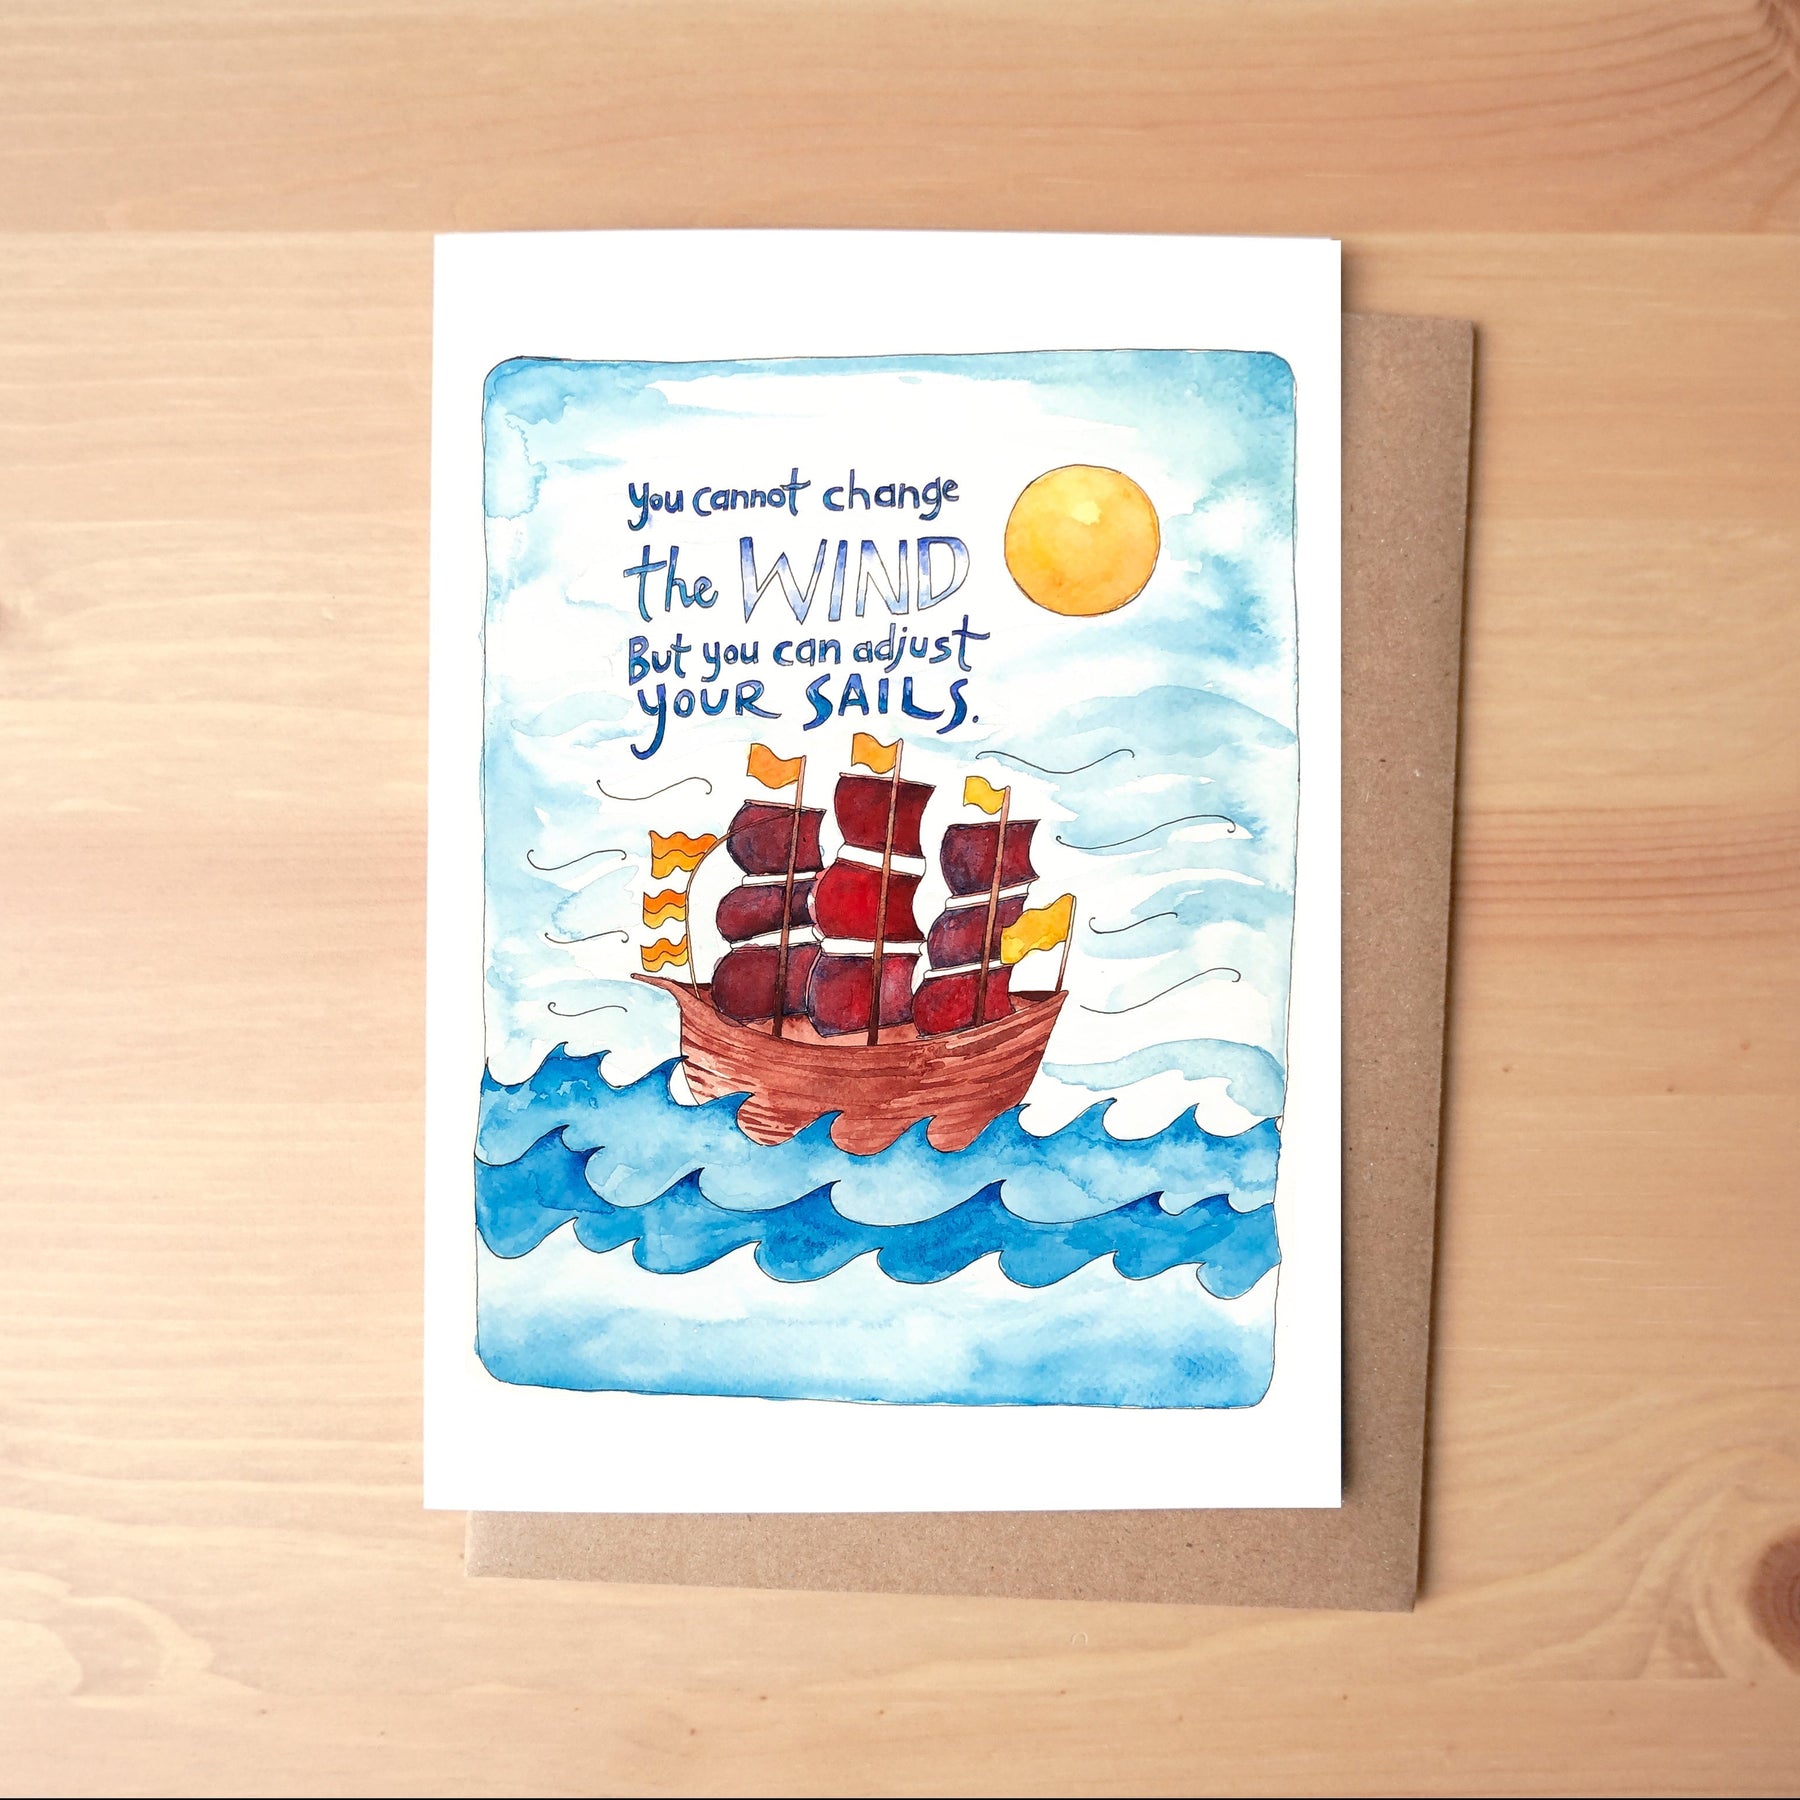 you cannot change
the WIND
But you can adjust
YOUR SAILS.